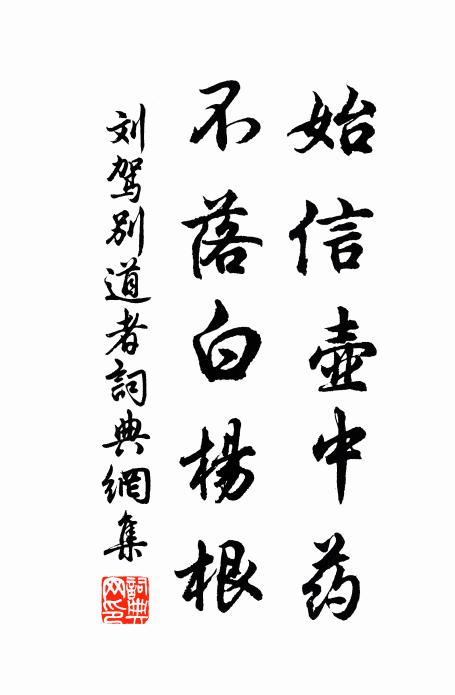 始信壺中药
不落白楊根
刘驾别道者詞典網集
詞典网印